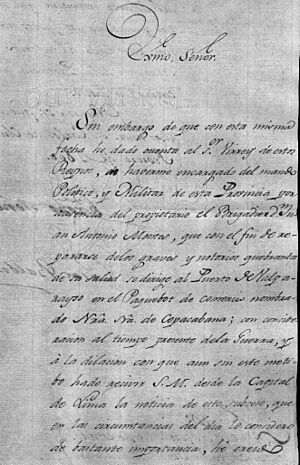 Exmo. Señor.
Sin embargo de que con esta misma
fecha he dado cuenta al Sr. Virrey de estos
Reynos, de haverme encargado del mando
Politico, y Militar de esta Provincia por
ausencia del propietario el Brigadier dn. Ju-
an Antonio Montes, que con el fin de re-
pararse de los graves y notorios quebranto
de su salud se dirige al Puerto de Valpa-
rayso en el Paquebot de comercio nombra-
do Nra. Sra. de Copacabana; con conside-
racion al tiempo presente de la Guerra, y
à la dilacion con que aun sin este mo-
tibo ha de recivir S.M. desde la Capital
de Lima la noticia de este subceso, que
en las circunstancias del dia lo considero
de bastante importancia, hé